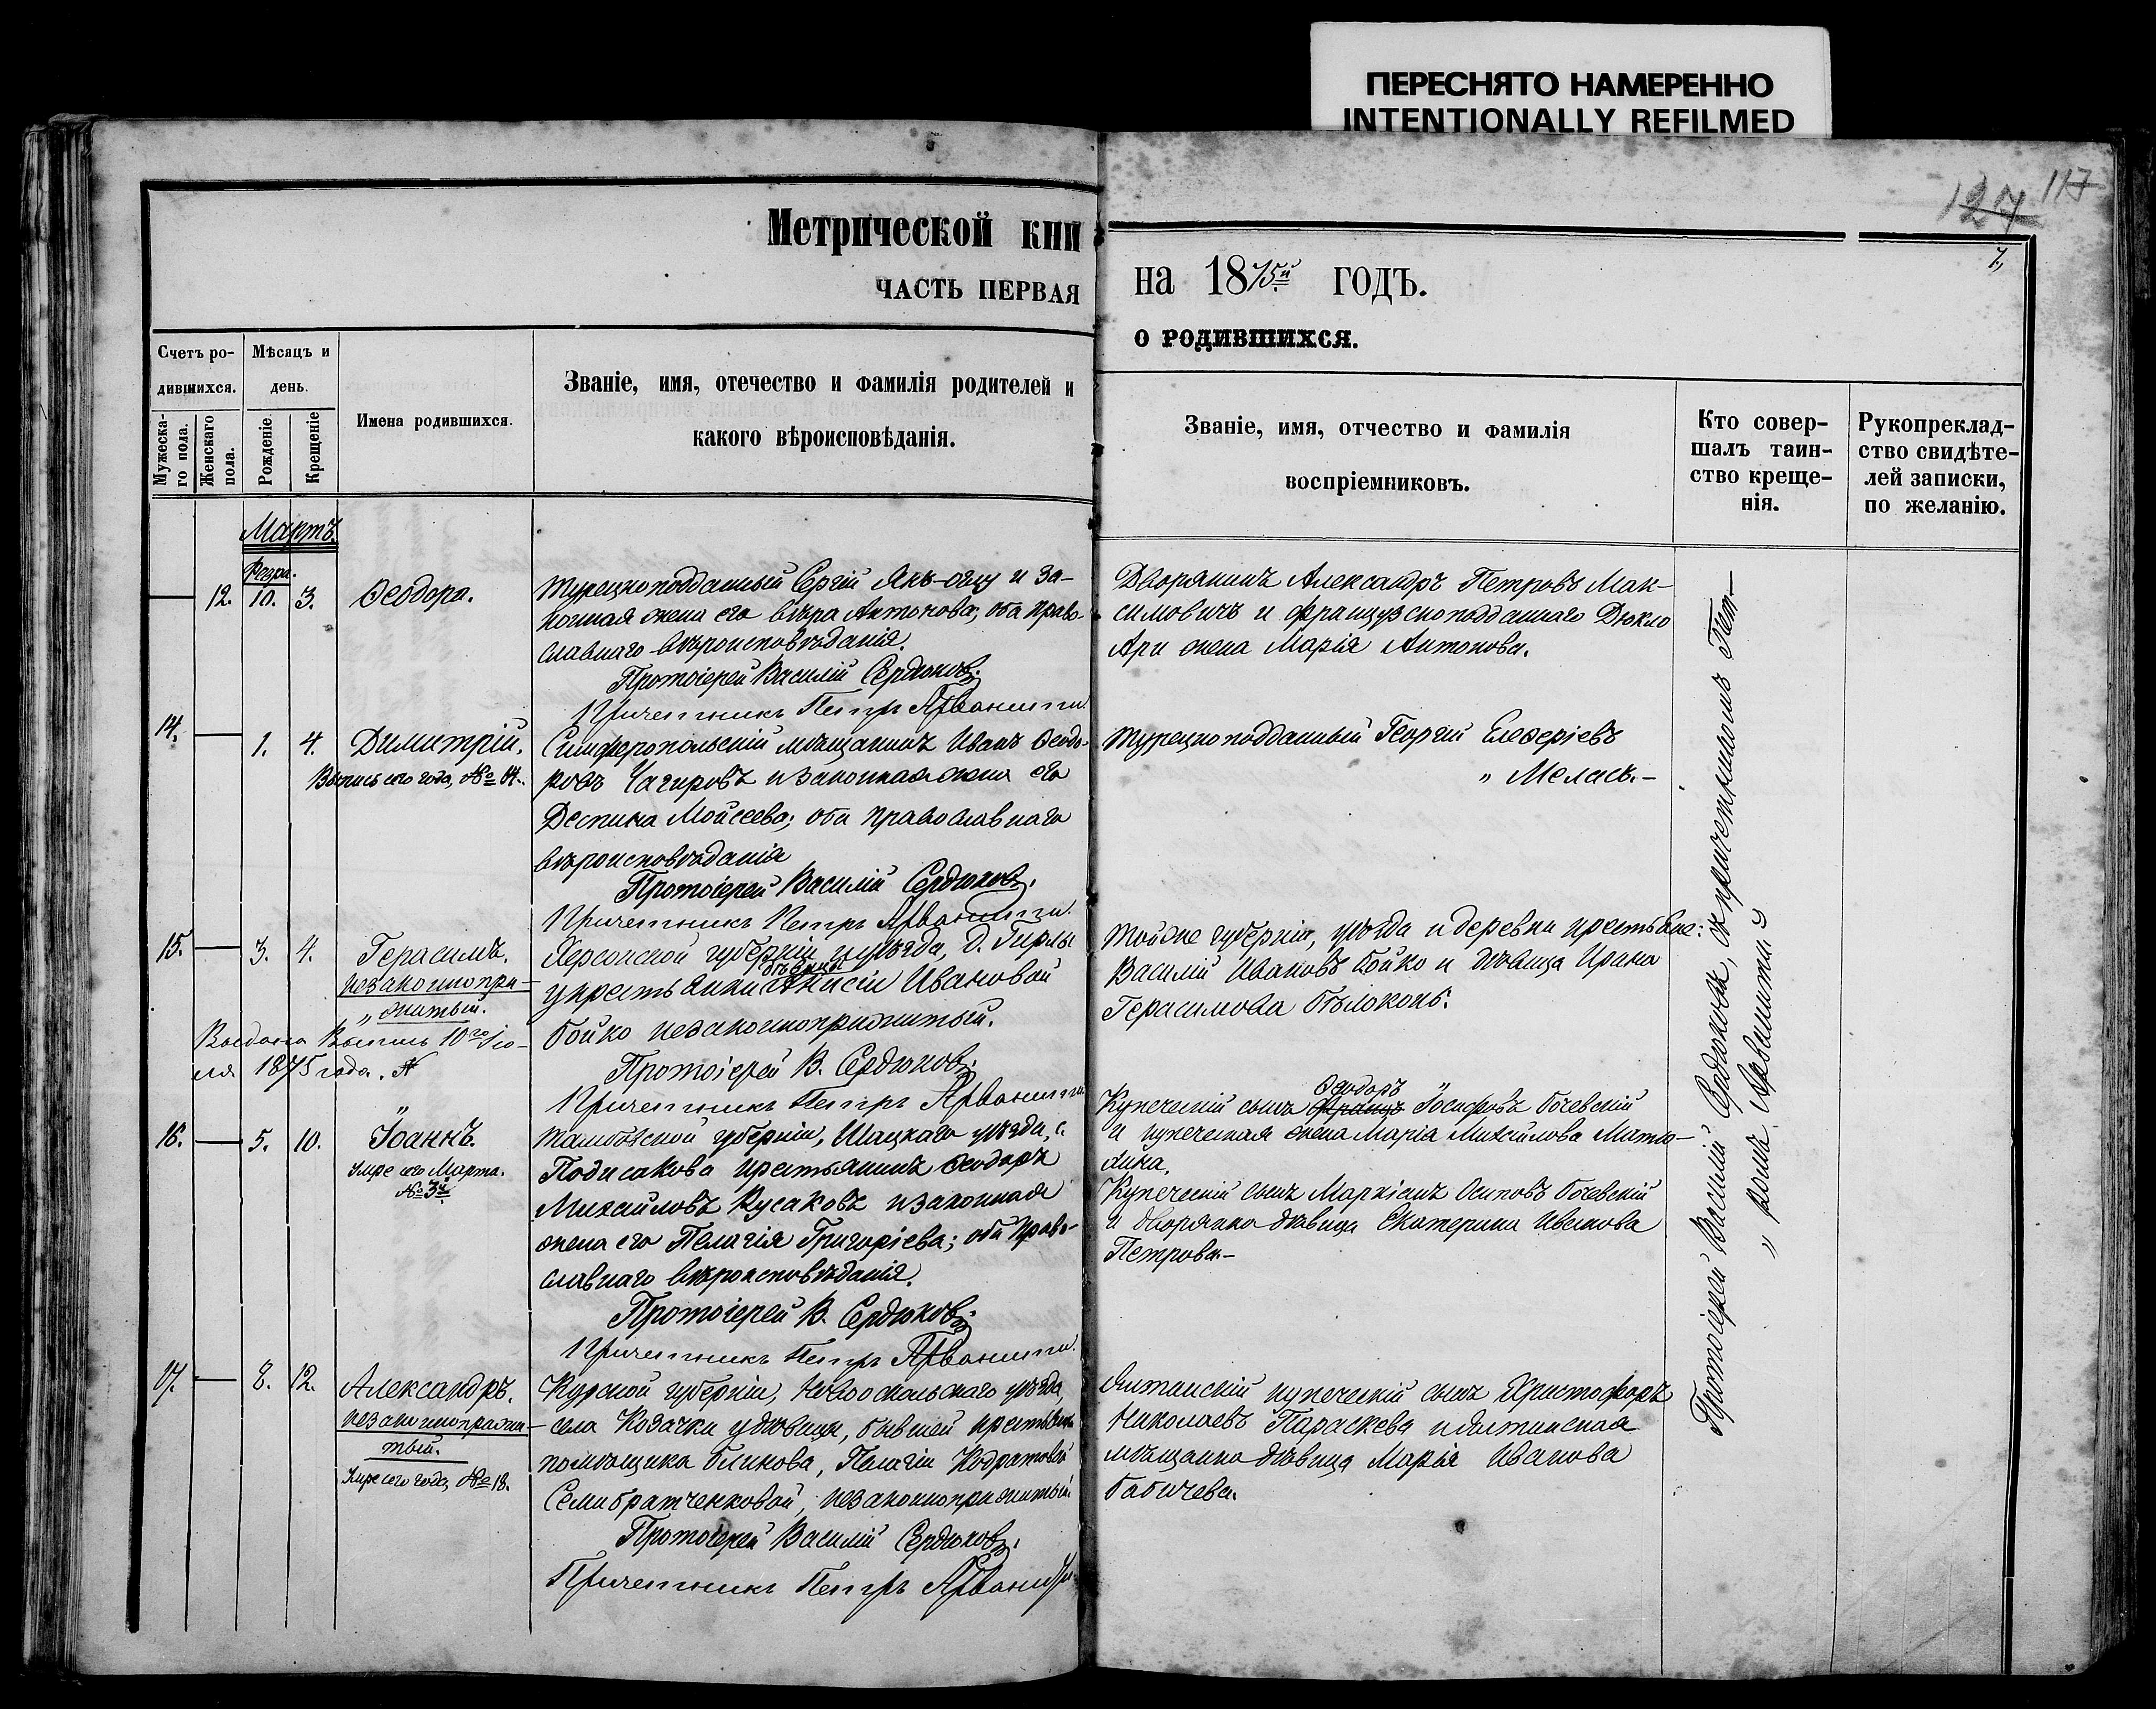 ПЕРЕСНЯТО НАМЕРЕННО
INTENTIONALLY REFILMED
127 117
7,
Метрической кни
ЧАСТЬ ПЕРВАЯ
на 1875й годъ.
о родившихся.
Счетъ ро-
дившихся.
Мужеска-
го пола.
Женскаго
пола.
Мѣсяцъ и
день.
Рожденіе
Крещеніе
Имена родившихся.
Званіе, имя, отечество и фамилія родителей и
какого вѣроисповѣданія.
Званіе, имя, отчество и фамилія
воспріемниковъ.
Кто совер-
шалъ таин-
ство креще-
нія.
Рукопреклад-
ство свидѣте-
лей записки,
по желанію.
Мартъ.
12. 10. 3. Ѳеодора.
Турецкоподданный Сергій Якъ-оглу и за-
конная жена его Вѣра Антонова, оба право-
славнаго вѣроисповѣданія.
Протоіерей Василій Сердюковъ.
Причетникъ Петръ Арванити
Дворянинъ Александръ Петровъ Мак-
симовичъ и французскоподданнаго Дюкло
Ари жена Марія Антонова.
14. 1. 4. Димитрій.
Выпись сего года, № 14.
Симферопольскій мѣщанинъ Иванъ Ѳеодо-
ровъ Чагировъ и законная жена его
Деспина Мойсеева; оба православнаго
вѣроисповѣданія
Протоіерей Василій Сердюковъ.
Причетникъ Петръ Арванити.
Турецкоподданный Георгій Елеѳеріевъ
„ Меласъ.-
15. 3. 4. Герасимъ.
незаконнопри-
„ житый.
Выдана Выпись 10го Iю-
ля 1875 года.
Херсонской губерніи и уѣзда, д. Гирлы
у крестьянки Анисіи Ивановой
Бойко незаконноприжитый.
Протоіерей В. Сердюковъ.
Причетникъ Петръ Арванити
Тойже губерніи, уѣзда и деревни крестьяне:
Василій Ивановъ Бойко и дѣвица Ирина
Герасимова Бѣлоконь.
16. 5. 10. Іоаннъ.
Умре сего Марта.
№ 3й
Тамбовской губерніи, Шацкаго уѣзда, с.
Подисакова крестьянинъ Ѳеодоръ
Михайловъ Кусаковъ и законная
жена его Пелагія Григоріева; оба право-
славнаго вѣроисповѣданія.
Протоіерей В. Сердюковъ.
Причетникъ Петръ Арванити.
Ѳеодоръ
Купеческій сынъ Францъ Іосифовъ Гочевскій
и купеческая жена Марія Михайлова Митю-
лина,
Купеческій сынъ Маркіанъ Осиповъ Гочевскій
и дворянка дѣвица Екатерина Иванова
Петрова.-
17. 8. 12. Александръ.
незаконноприжи-
тый.
Умре сего года, № 18.
Курской губерніи, Новооскольскаго уѣзда,
села Козачки у дѣвицы, бывшей крестьянки
помѣщика Блинова, Пелагіи Кодратовой
Семибратченковой, незаконноприжитый
Протоіерей Василій Сердюковъ.
Причетникъ Петръ Арванити
Ялтинскій купеческій сынъ Христофоръ
Николаевъ Параскева и ялтинская
мѣщанка дѣвица Марія Иванова
Бабичева.
Протоіерей Василій Сердюковъ, съ причетникомъ Пет-
„ ромъ Арванити